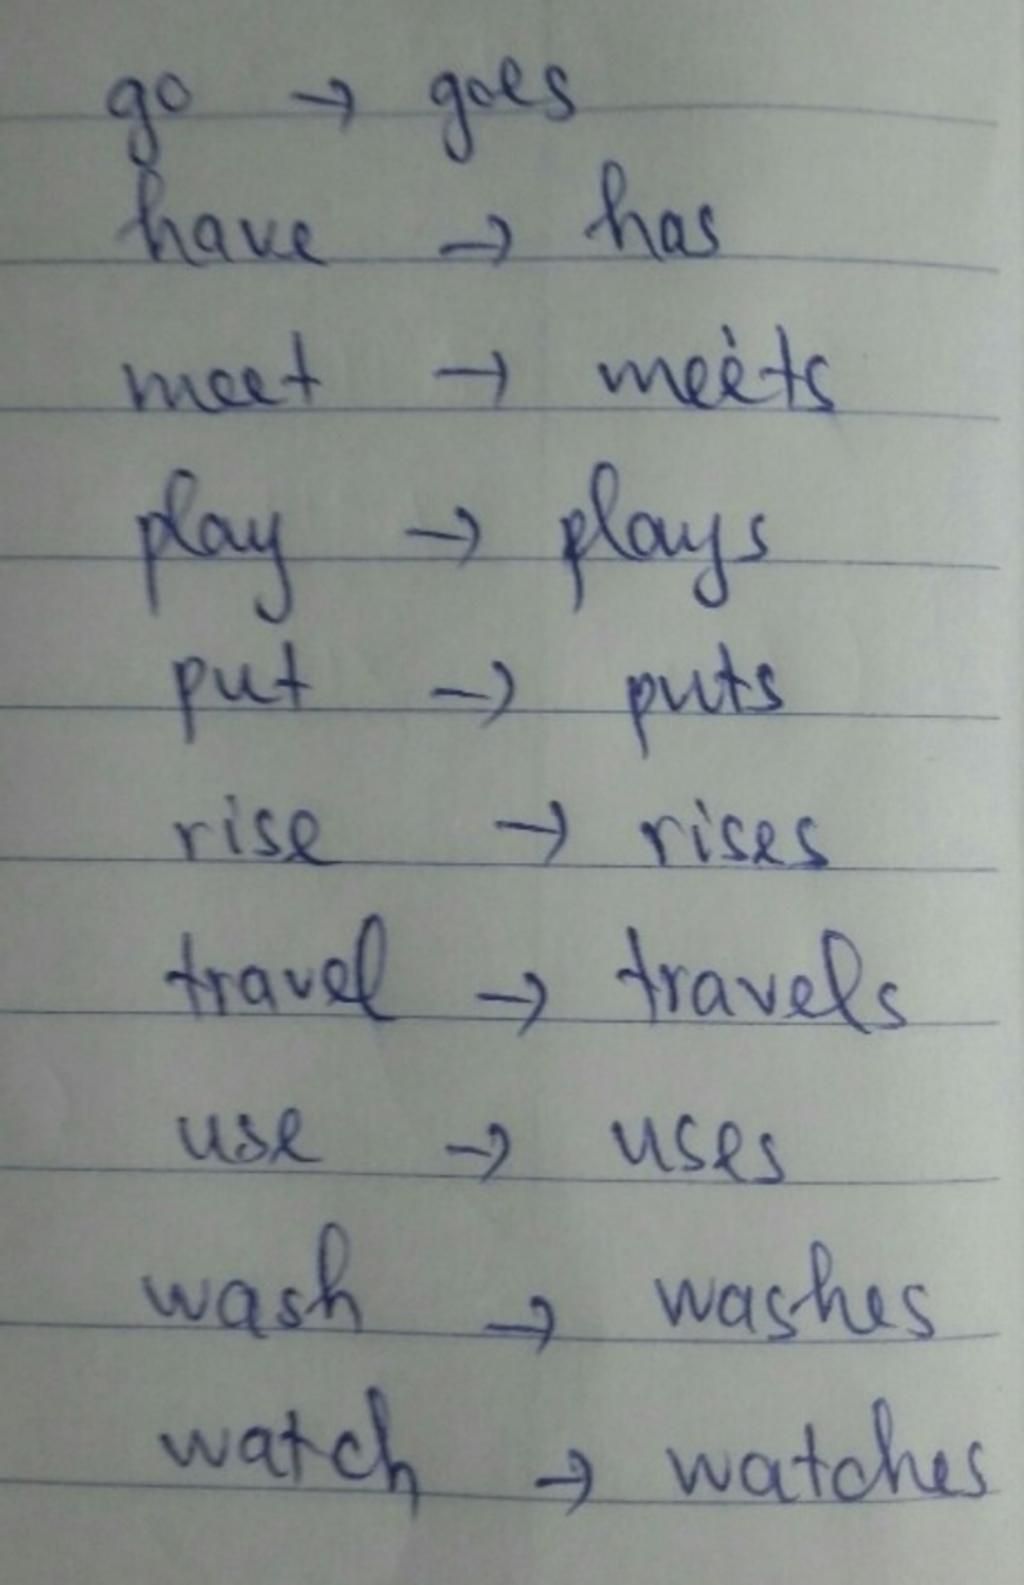 go → goes
have → has
meet → meets
play → plays
put → puts
rise → rises
travel → travels
use → uses
wash → washes
watch → watches